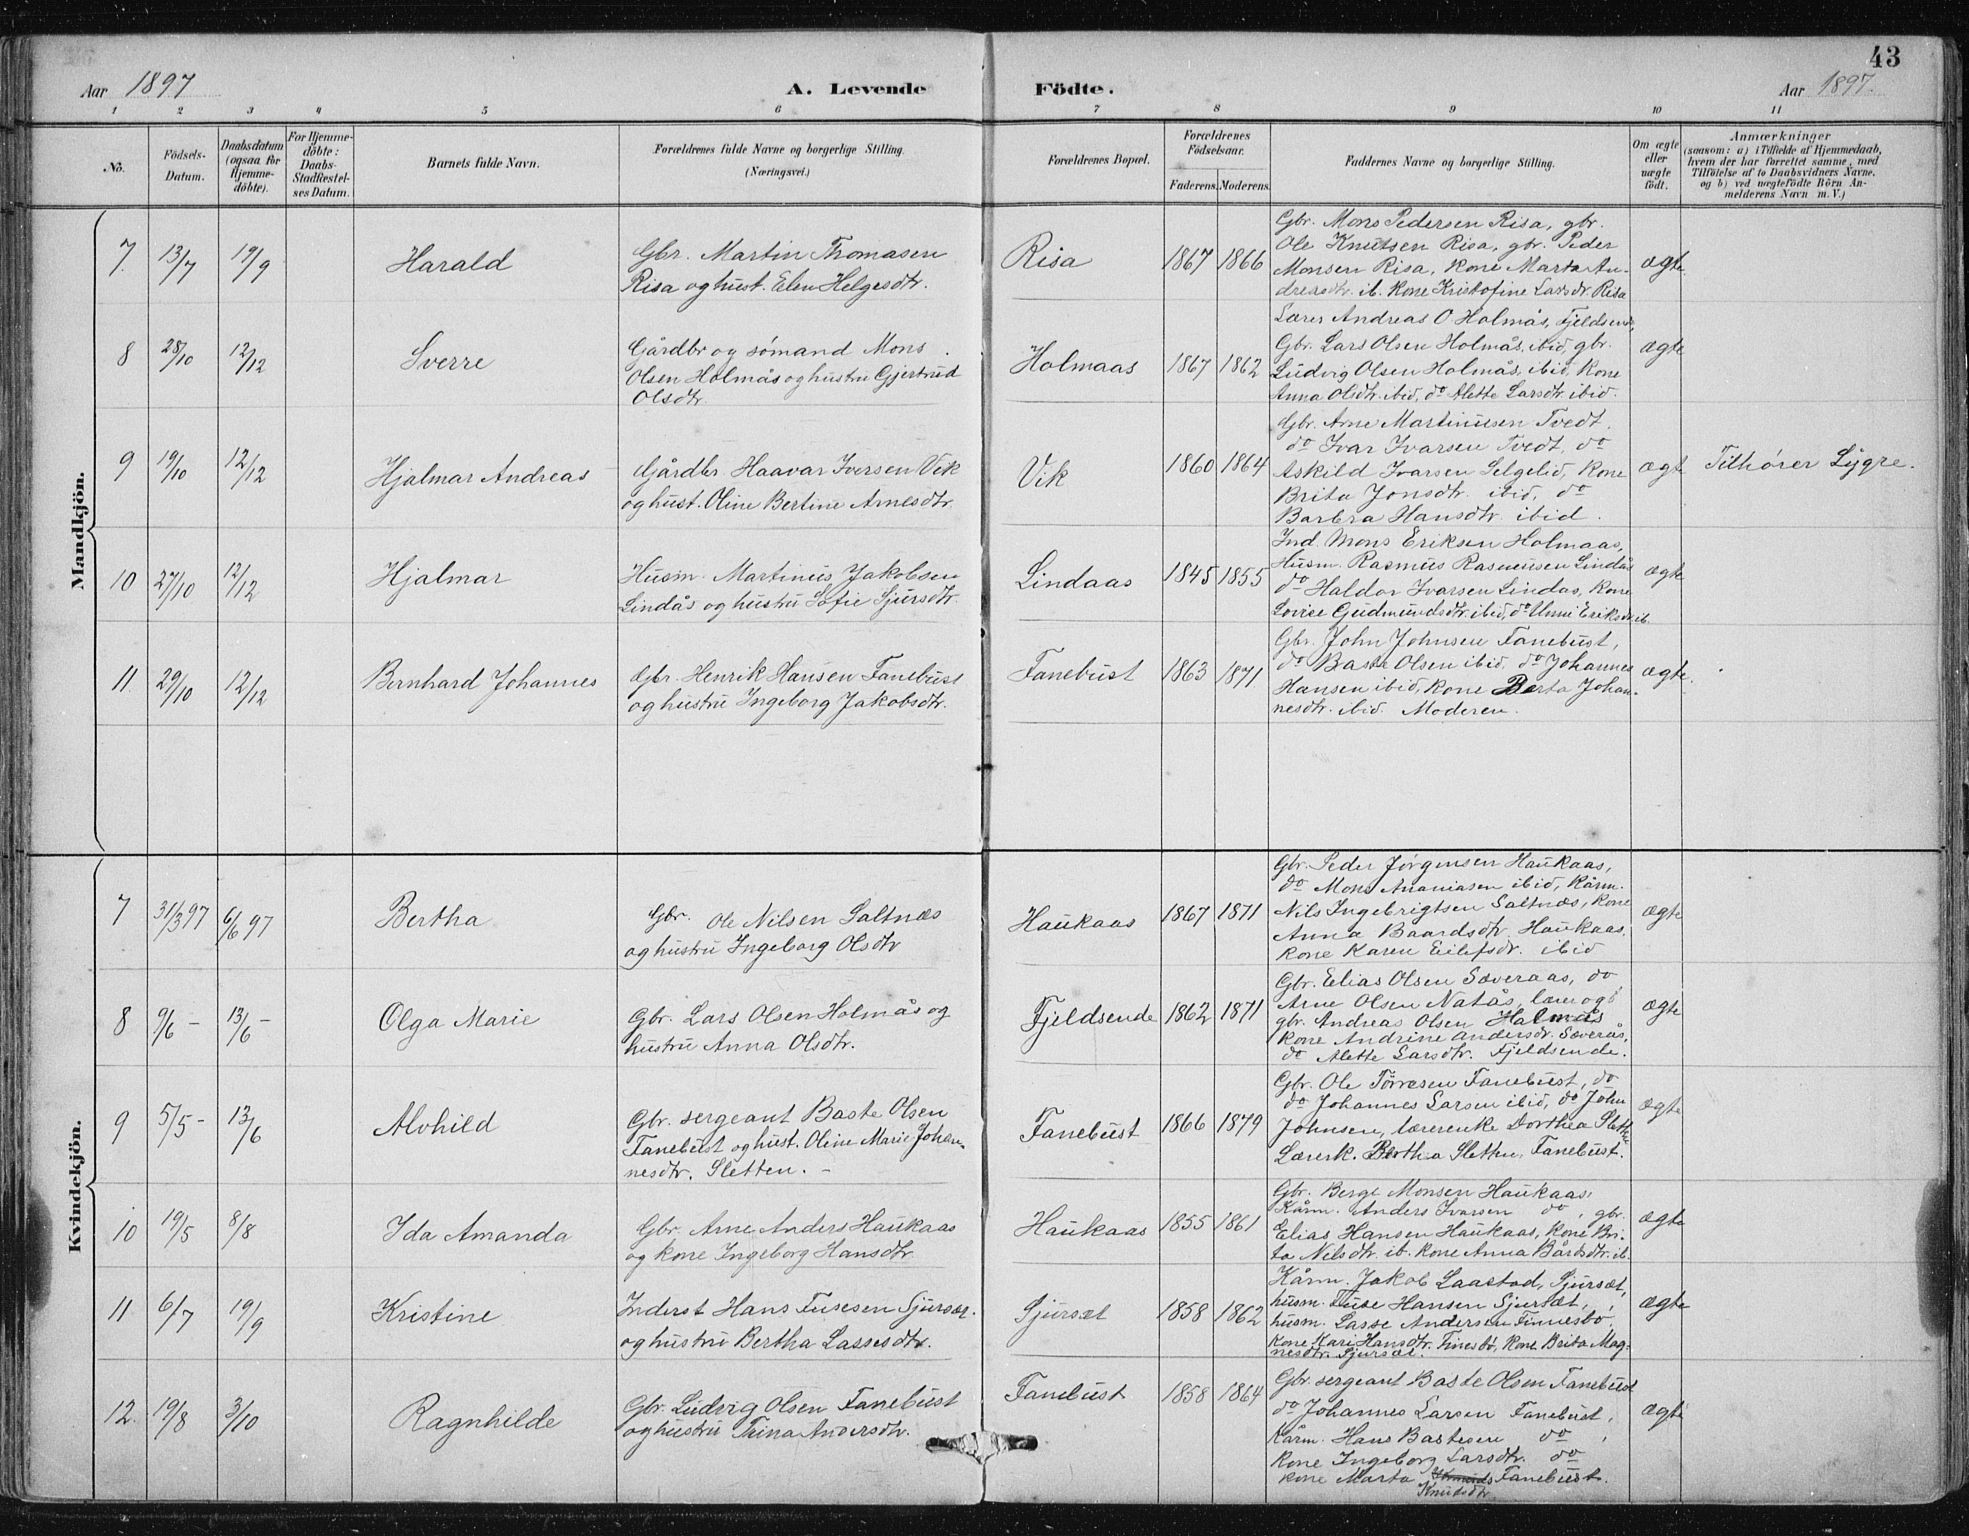 43
Aar 1897
A. Levende Födte.
Aar 1897.
1 2 3 4 5 6 7 8 9 10 11
No.
Födsels-
Datum.
Daabsdatum
(ogsaa for
Hjemme-
döbte).
For Hjemme-
döbte:
Daabs-
Stadfæstel-
ses Datum.
Barnets fulde Navn.
Forældrenes fulde Navne og borgerlige Stilling.
(Næringsvei.)
Forældrenes Bopæl.
Forældrenes
Födselsaar.
Faderens. Moderens.
Faddernes Navne og borgerlige Stilling.
Om ægte
eller
uægte
födt.
Anmærkninger
(saasom: a) i Tilfælde af Hjemmedaab,
hvem der har forrettet samme, med
Tilföielse af to Daabsvidners Navne,
og b) ved uægtefödte Börn An-
melderens Navn m. V.)
Mandkjön.
7. 13/7 19/9
Harald
Gbr. Martin Thomasen
Risa og hust. Elen Helgesdtr.
Risa
1867 1866
Gbr. Mons Pedersen Risa, gbr.
Ole Knutsen Risa, gbr. Peder
Monsen Risa, kone Marta An-
dreasdtr. ib. kone Kristofine Larsdr. Risa
ægte
8 28/10 12/12
Sverre
Gårdbr og sømand Mons
Olsen Holmås og hustru Gjertrud
Olsdtr.
Holmaas
1867 1862
Lærer Andreas O Holmås, Fjeldsende,
Gbr. Lars Olsen Holmås, ibid, gbr.
Ludvig Olsen Holmås, ibid, kone
Anna Olsdtr. ibid, do Alette Larsdtr. ibid.
ægte
9 19/10 12/12
Hjalmar Andreas
Gårdbr. Haavar Iversen Vik
og hust. Oline Bertine Arnesdtr.
Vik
1860 1864
Gbr. Arne Martinusen Tvedt.
do Ivar Ivarsen Tvedt, do
Askild Ivarsen Selgelid, kone
Brita Jonsdtr. ibid, do
Barbra Hansdtr. ibid.
ægt
Tilhører Lygre.
10 27/10 12/12
Hjalmar
Husm. Martinus Jakobsen
Lindås og hustru Sofie Sjursdtr.
Lindaas
1845 1855
Ind. Mons Eriksen Holmaas,
Husm. Rasmus Rasmusen Lindås
do Haldor Ivarsen Lindas, kone
Lovise Gudmundsdtr. ibid, do Unni Eriksdtr. ib.
ægte
11. 29/10 12/12
Bernhard Johannes
Gbr. Henrik Hansen Fanebust
og hustru Ingeborg Jakobsdtr.
Fanebust
1863 1871
Gbr. John Johnsen Fanebust,
do Baste Olsen ibid, do Johannes
Hansen ibid, kone Berta Johan-
nesdtr. ibid. Moderen.
ægte.
Kvindekjön.
7 31/3 97 6/6 97
Bertha
Gbr. Ole Nilsen Saltnæs
og hustru Ingeborg Olsdtr
Haukaas
1867 1871
Gbr. Peder Jørgensen Haukaas,
do Mons Ananiasen ibid, kårm.
Nils Ingebrigtsen Saltnæs, kone
Anna Baardsdtr. Haukaas,
kone Karen Eilefsdr. ibid
ægte
8 9/6 - 13/6 -
Olga Marie
Gbr. Lars Olsen Holmås og
hustru Anna Olsdtr.
Fjeldsende
1862 1871
Gbr. Elias Olsen Sæveraas, do
Arne Olsen Natås, lærer og
gbr. Andreas Olsen Halmås
kone Andrine Andersdr. Sæverås,
do Alette Larsdtr. Fjeldsende.
ægte
9 5/5 - 13/6
Alvhild
Gbr. sergeant Baste Olsen
Fanebust og hust. Oline Marie Johan-
nesdtr. Sletten. -
Fanebust
1866 1879
Gbr. Ole Torresen Fanebust, do
do Johannes Larsen ibid, do John
Johnsen, lærerenke Dorthea Sletten
Lærerk. Bertha Sletten, Fanebust.
ægte
10 19/5 8/8
Ida Amanda
Gbr. Arne Anders Haukaas
og kone Ingeborg Hansdtr.
Haukaas
1855 1861
Gbr. Berge Monsen Haukaas,
Kårm. Anders Ivarsen do, gbr.
Elias Hansen Haukaas, kone Bri-
ta Nilsdtr. ib. kone Anna Bårdsdtr. ib.
ægte
11 6/7 19/9
Kristine
Inderst Hans Tusesen Sjursæt.
og hustru Bertha Lassesdtr.
Sjursæt
1858 1862
Kårm. Jakob Laastad, Sjursæt,
husm. Tuse Hansen Sjursæt,
husm. Lasse Andersen Finnesbø
kone Kari Hansdtr. Finesbø, kone Brita Mag-
nesdtr. Sjursæt.
ægte
12. 19/8 3/10
Ragnhilde
Gbr. Ludvig Olsen Fanebust
og hustru Trina Andersdtr.
Fanebust
1858 1864
Gbr. sergeant Baste Olsen Fanebust
do Johannes Larsen Fanebust,
Kårm. Hans Bastesen do,
kone Ingeborg Larsdtr. do
kone Marta Fanebust.
Knudsdtr.
ægte